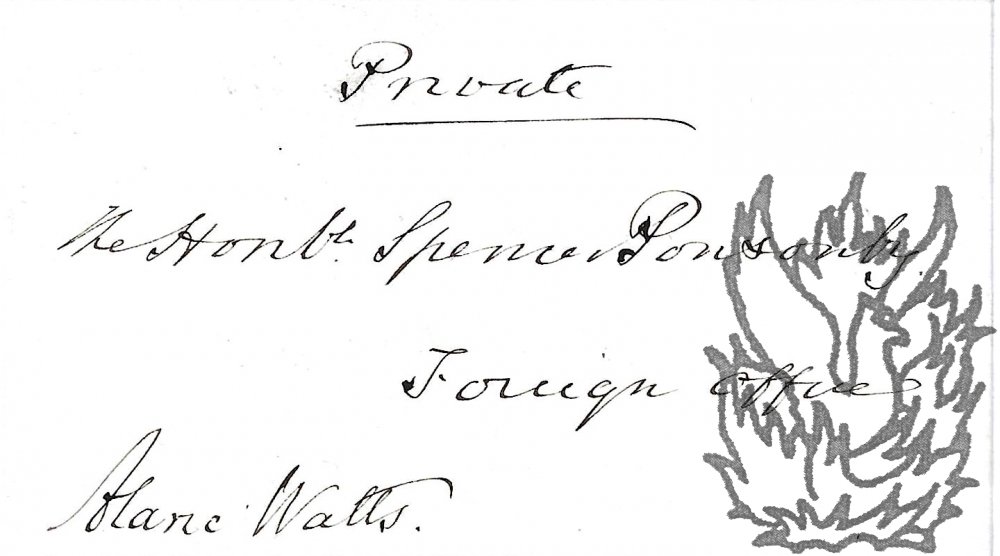 Private
The Honble. Spencer Ponsonby
Foreign Office
Alaric Watts.